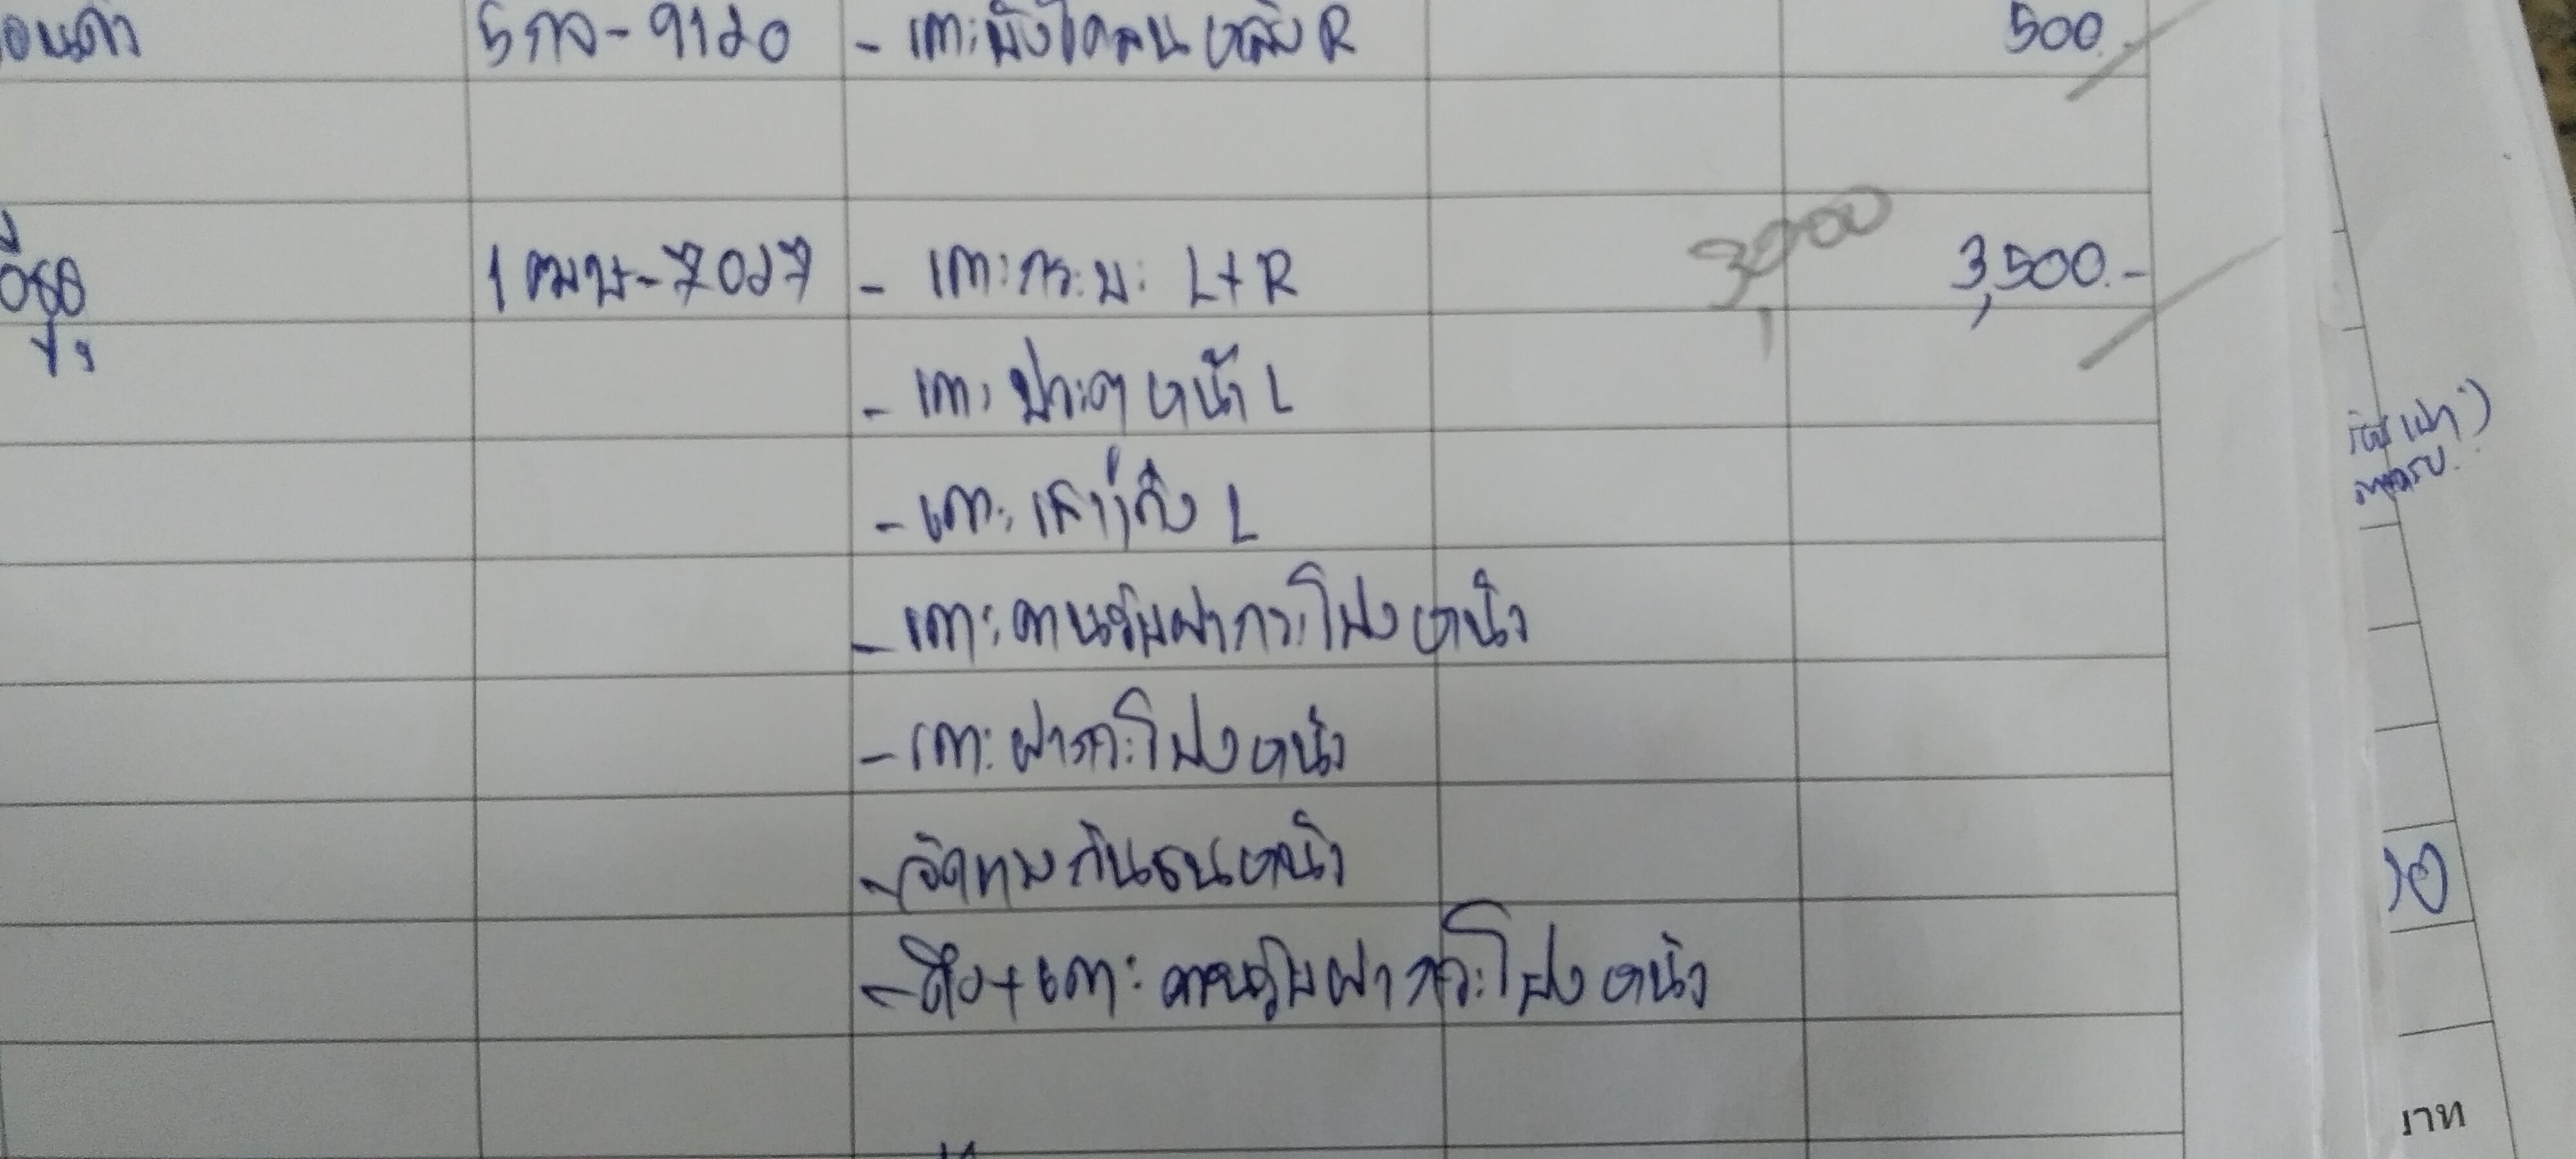 5กจ-9120 - เคาะบังโคลนหลัง R 500.-
3,000
1ฒษ-7027 - เคาะกระบะ L+R 3,500.-
- เคาะประตูหน้า L
- เคาะเสาเก๋ง L
- เคาะคานรับฝากระโปรงหน้า
- เคาะฝากระโปงหน้า
- จัดทรงกันชนหน้า
- ดึง+เคาะคานรับฝากระโปงหน้า
าท